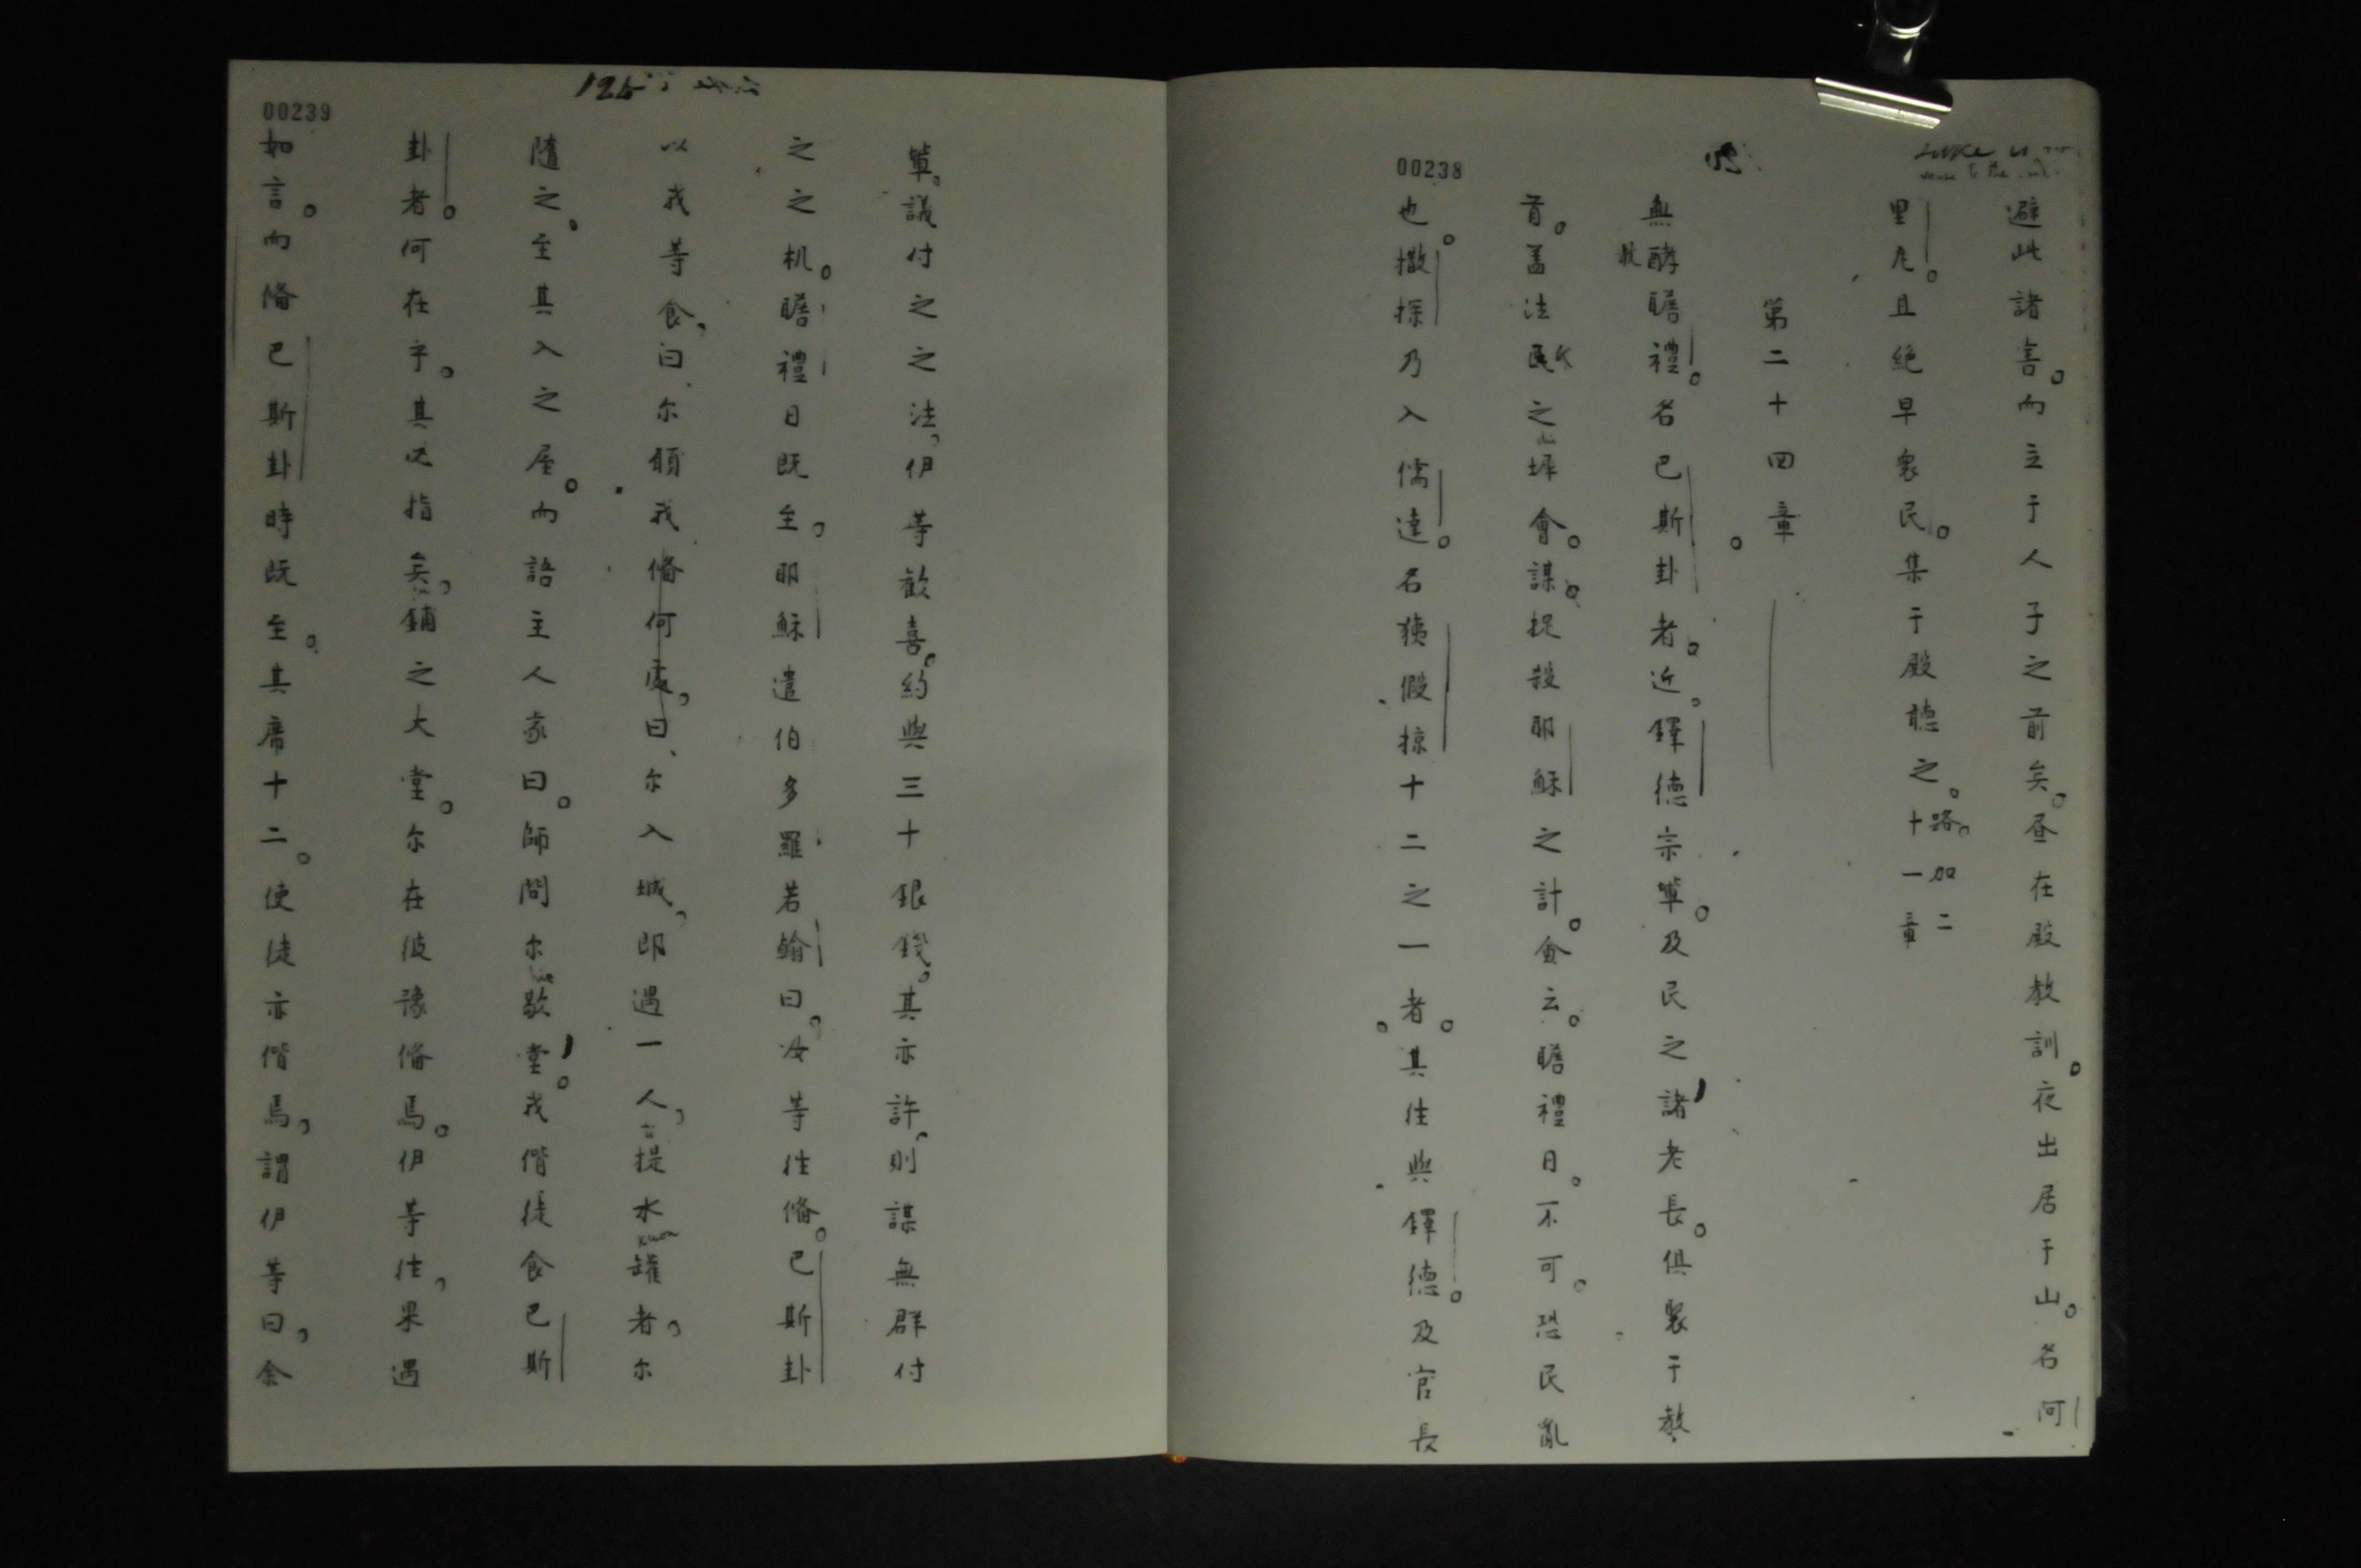 00238
避此諸害。而立于人子之前矣。昼在殿教訓。夜出居于山。名何
里尼。且絕早衆民。集于殿聽之。路加二十一章
第二十四章
無酵瞻禮。名巴斯卦者。近。鐸德宗輩。及民之諸老長。俱聚于教
首。盖法氏之坪會。謀。捉殺耶穌之計。僉云。瞻禮日。不可。恐民亂
也。撒探乃入儒達。名猗假掠十二之一者。其往與鐸德。及官長
00239
125
輩。議付之之法，伊等歡喜。約與三十銀錢。其亦許，則謀無群付
之之机。瞻禮日既至，耶穌遣伯多羅若翰曰，汝等往俻。巴斯卦
以我等食，曰、尔願我俻何處，曰、尔入城，即遇一人，提水罐者，尔
隨之。至其入之屋。而語主人家曰。師問尔歇堂。我偕徒食巴斯
卦者。何在乎。其必指矣，鋪之大堂。尔在彼豫俻焉。伊等往，果遇
如言。而俻巴斯卦時既至。其席十二。使徒亦偕焉，謂伊等曰，余